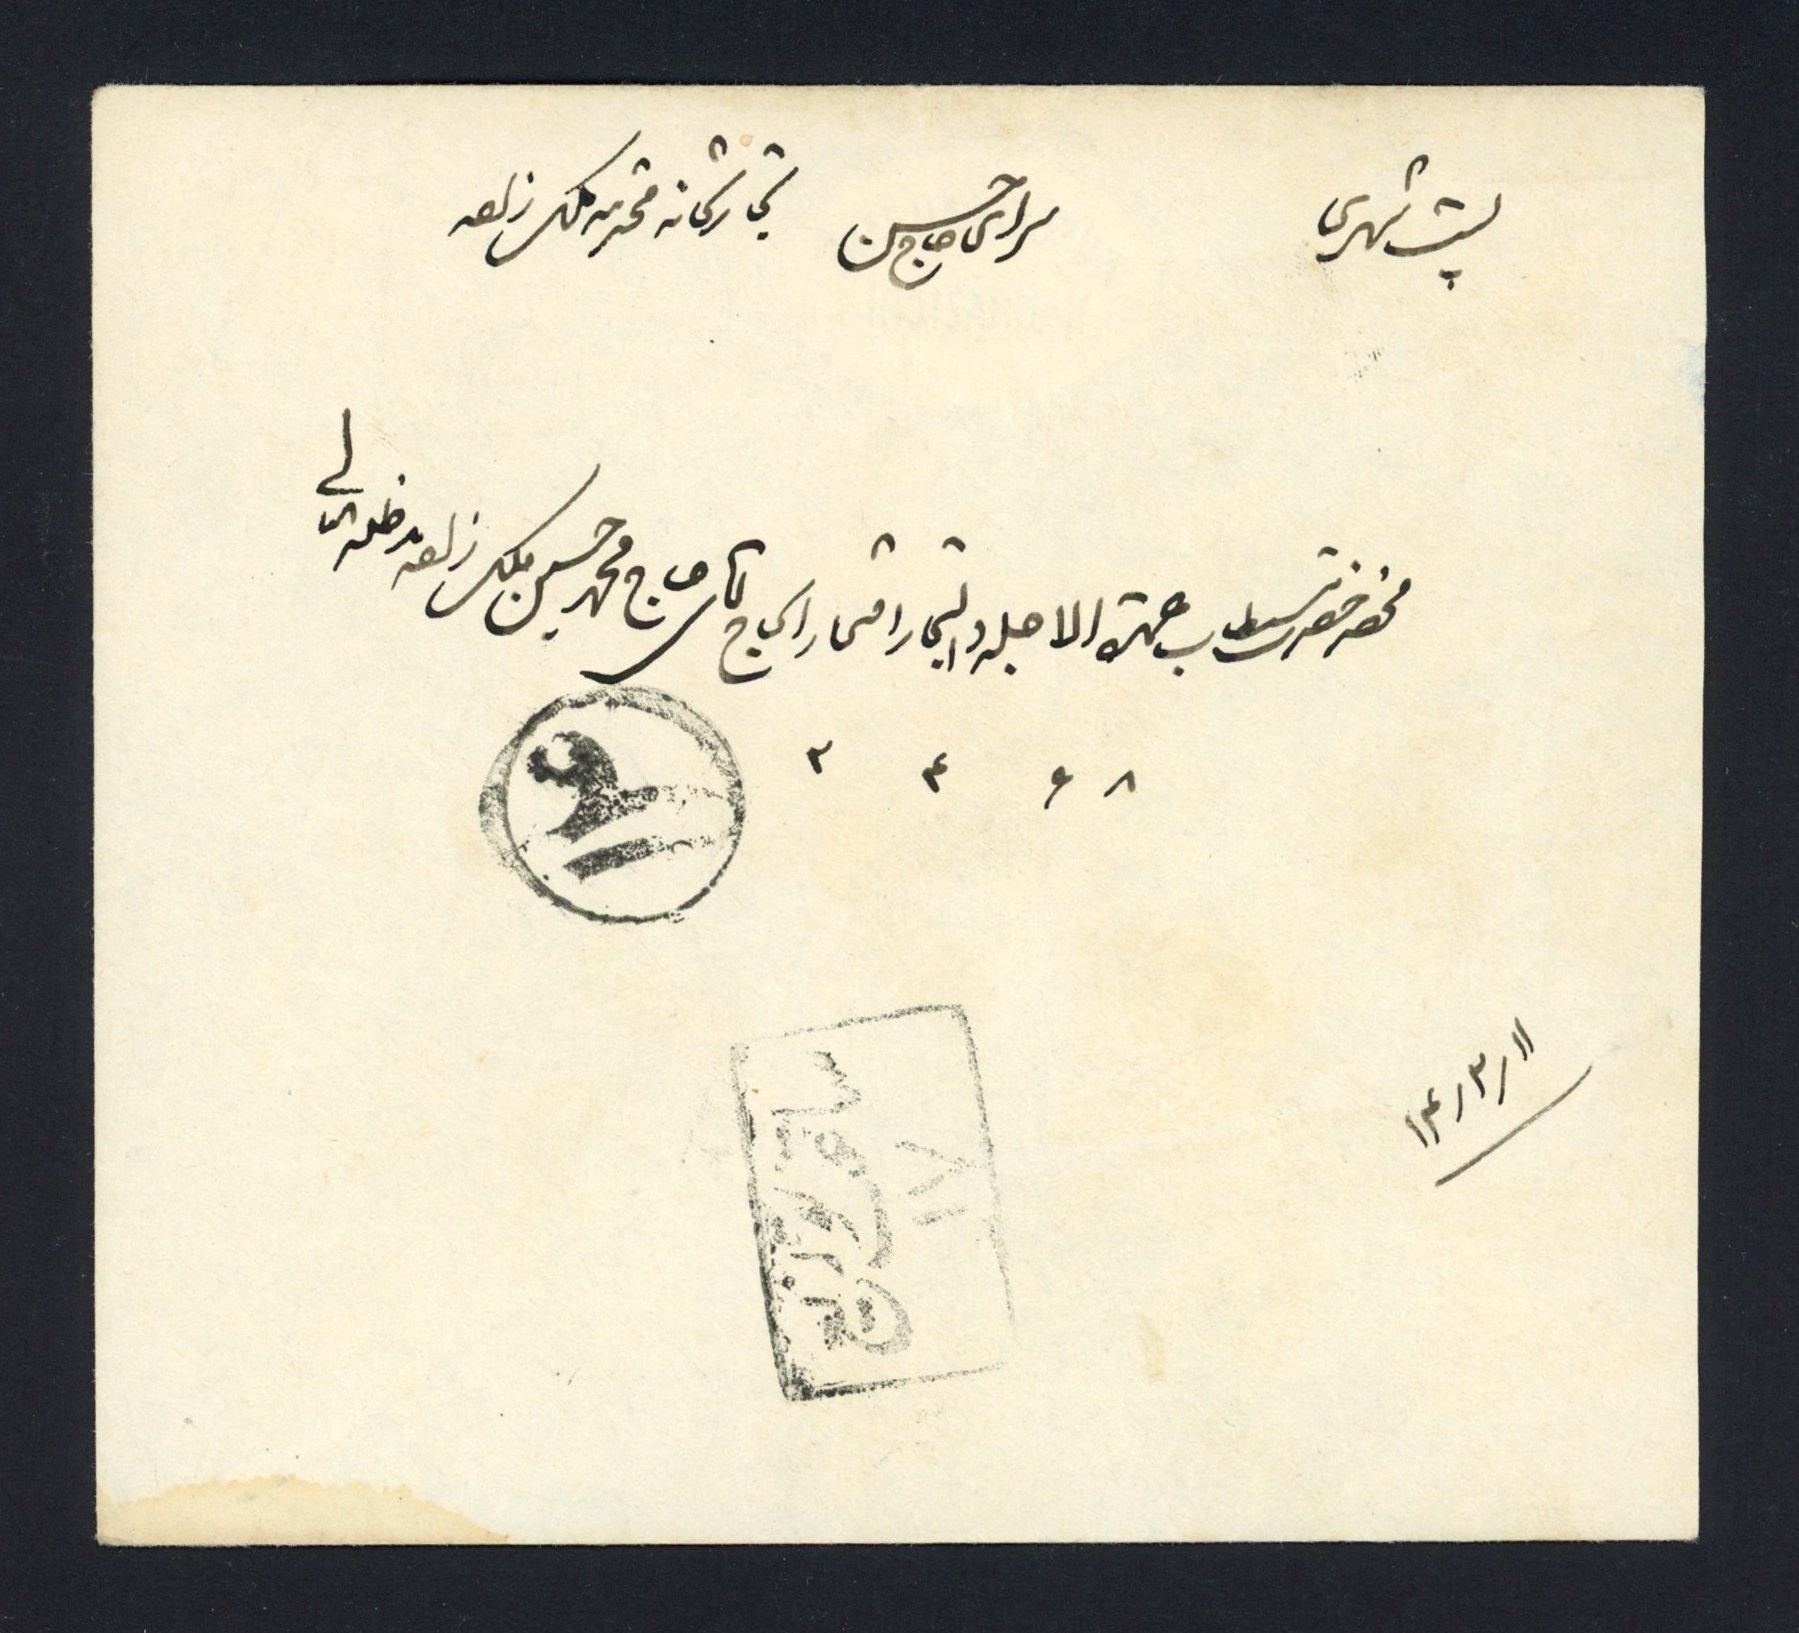 پست شهری سرای حاج حسن تجارتخانه محترمه ملک زاده
حضور حضرت مستطاب عمدة الاجله و التجار افتخار الحاج آقای حاج محمد حسین ملک زاده مد ظله العالی
۸ ۶ ۴ ۲
۱۱ / ۳ / ۱۴
۱۷